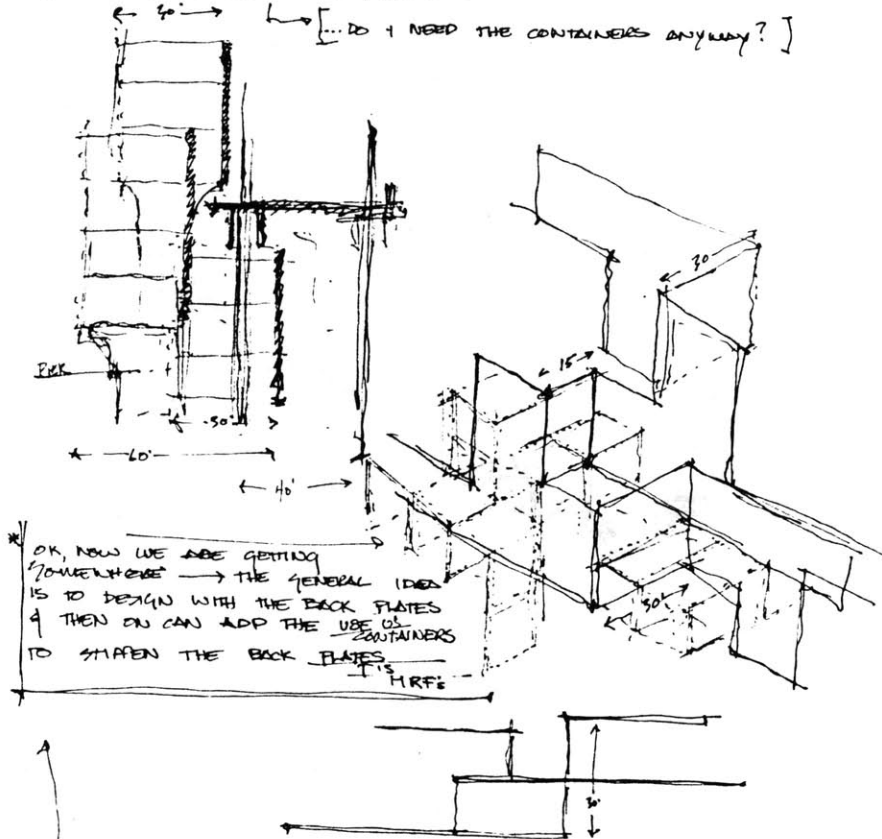 30'
[... DO I NEED THE CONTAINERS ANYWAY? ]
30
15
PIER
30'
60'
40'
30'
* OK, NOW WE ARE GETTING
SOMEWHERE → THE GENERAL IDEA
IS TO DESIGN WITH THE BACK PLATES
& THEN ON CAN ADD THE USE
CONTAINERS
TO STIFFEN THE BACK PLATES
MRF's
30'